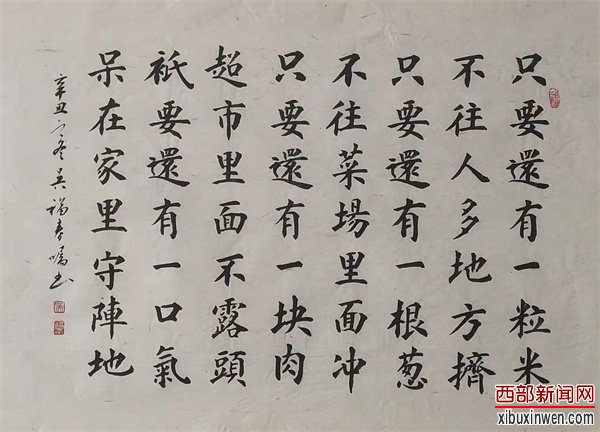 只要還有一粒米
不往人多地方擠
只要還有一根葱
不往菜場里面冲
只要還有一块肉
超市里面不露頭
衹要還有一口氣
呆在家里守陣地
辛丑之冬吴福春嘱书
西部新闻网
xibuxinwen.com